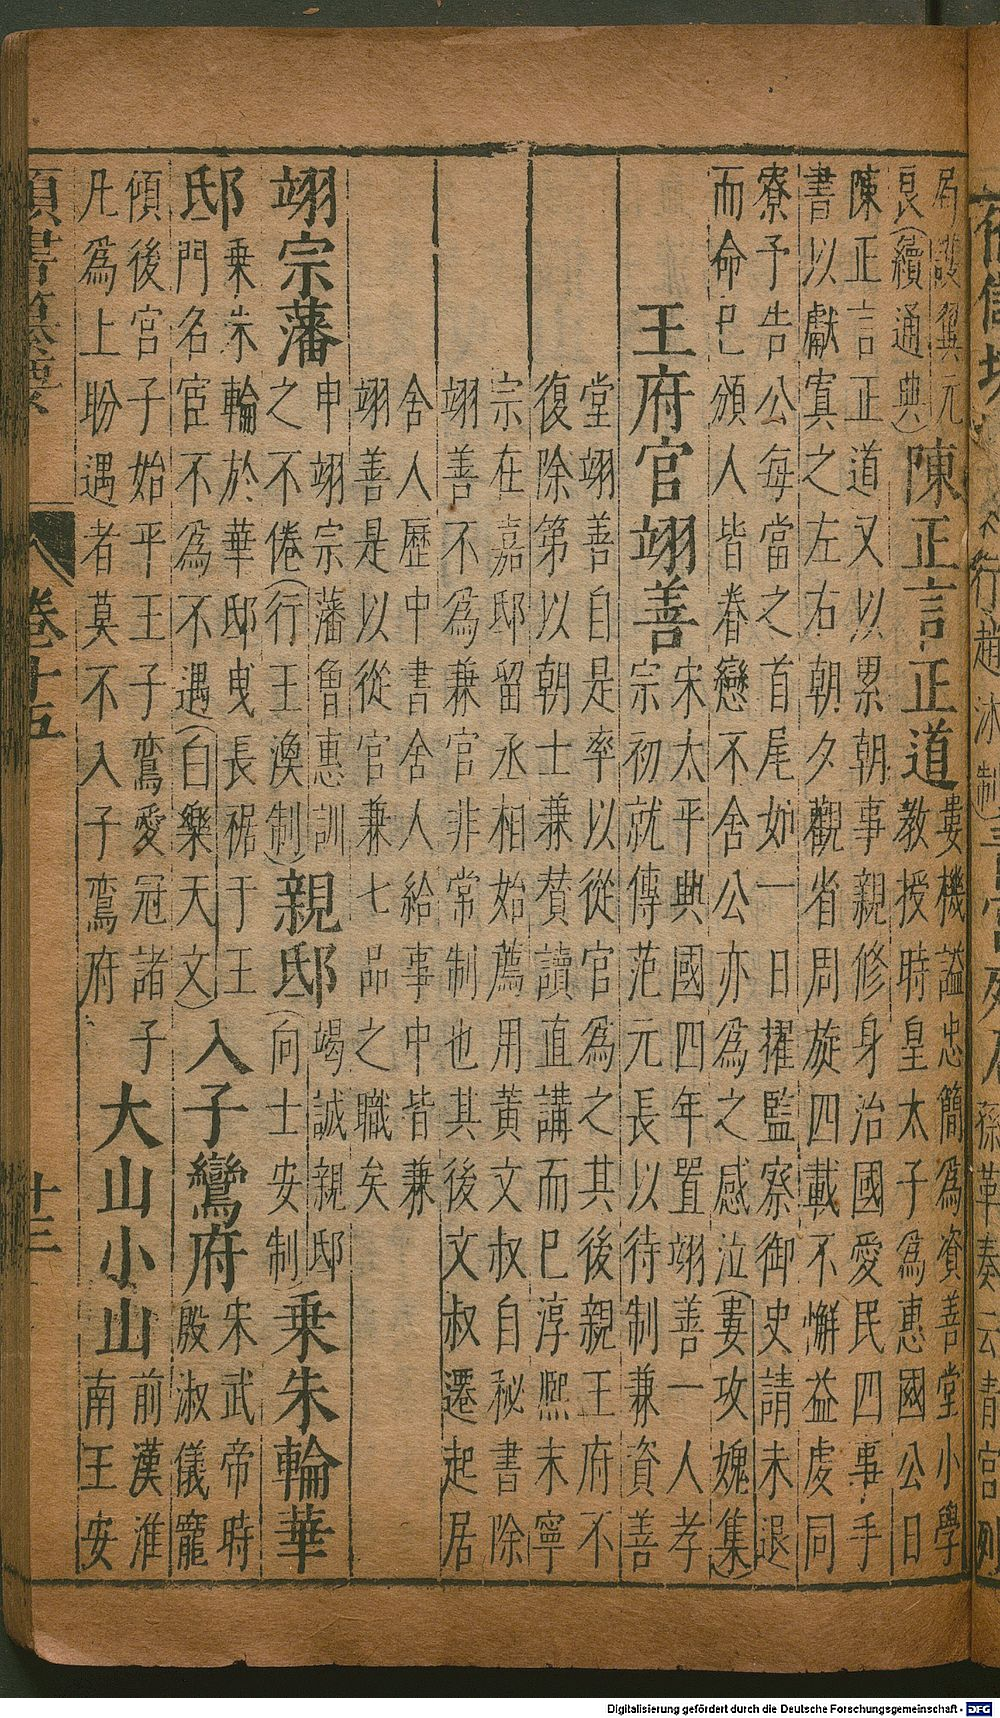 護翼元
良(續通典)
陳正言正道
婁機謚忠簡為資善堂小學
教授時皇太子為惠國公日
陳正言正道又以累朝事親修身治國愛民四事手
書以獻寘之左右朝夕觀省周旋四載不懈益虔同
寮予告公每當之首尾如一日擢監察御史請未退
而命已頒人皆眷戀不舍公亦為之感泣(婁攻媿集)
王府官翊善
宋太平典國四年置翊善一人孝
宗初就傳范元長以待制兼資善
堂翊善自是率以從官為之其後親王府不
復除第以朝士兼贊讀直講而已淳熙末寧
宗在嘉邸留丞相始薦用黃文叔自秘書除
翊善不為兼官非常制也其後文叔遷起居
舍人歷中書舍人給事中皆兼
翊善是以從官兼七品之職矣
翊宗藩
申翊宗藩魯惠訓
之不倦(行王渙制)
親邸
竭誠親邸
(向士安制)
乗朱輪華
邸
乗朱輪於華邸曳長裾于王
門名宦不為不遇(白樂天文)
入子鸞府
宋武帝時
殷淑儀寵
傾後宮子始平王子鸞愛冠諸子
凡為上盼遇者莫不入子鸞府
大山小山
前漢淮
南王安
類書纂要
卷十五
十三
Digitalisierung gefördert durch die Deutsche Forschungsgemeinschaft - DFG